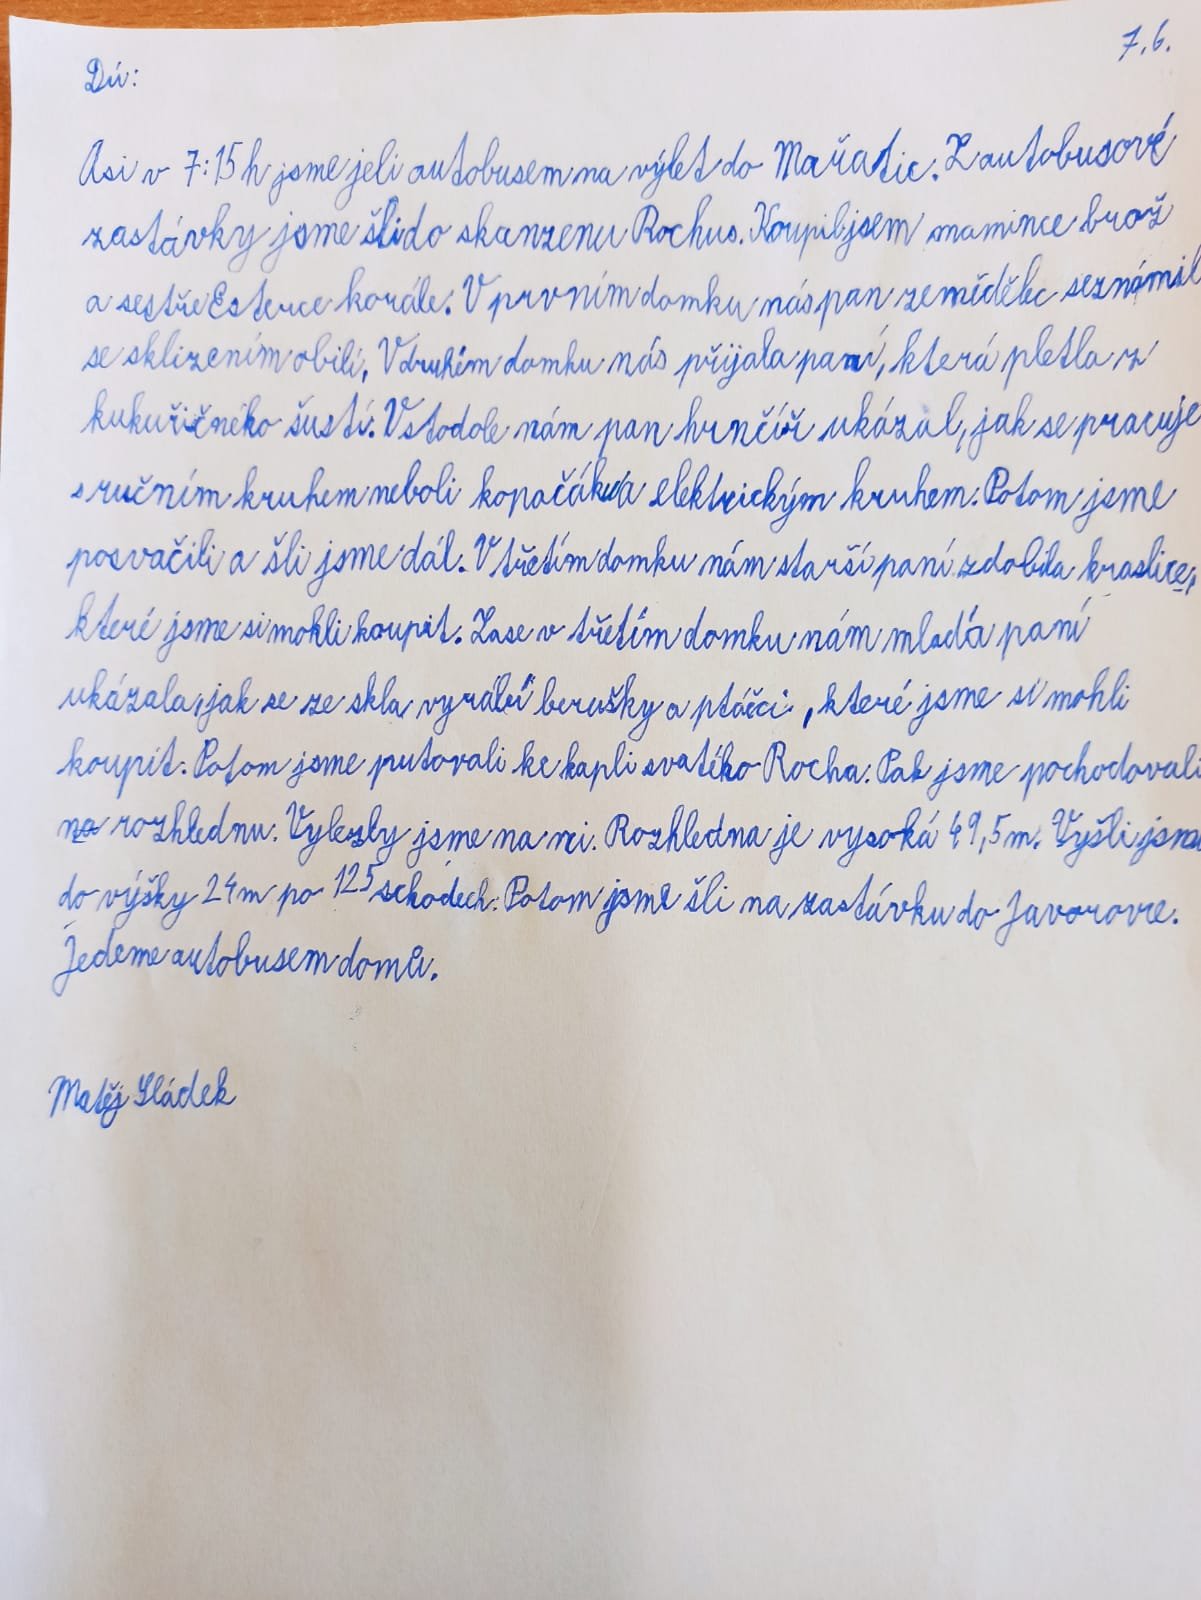 7.6.
Dú:
Asi v 7:15 h jsme jeli autobusem na výlet do Mařatic. Z autobusové
zastávky jsme šli do skanzenu Rochus. Koupil jsem mamince brož
a sestře Esterce korále. V prvním domku nás pan zemědělec seznámil
se sklizením obilí. V druhém domku nás přijala paní, která pletla z
kukuřičného šustí. V stodole nám pan hrnčíř ukázal, jak se pracuje
s ručním kruhem neboli kopačáku a elektrickým kruhem. Potom jsme
posvačili a šli jsme dál. V třetím domku nám starší paní zdobila kraslice,
které jsme si mohli koupit. Zase v třetím domku nám mladá paní
ukázala, jak se ze skla vyrábí berušky a ptáčci, které jsme si mohli
koupit. Potom jsme putovali ke kapli svatého Rocha. Pak jsme pochodovali
na rozhlednu. Vylezly jsme na ni. Rozhledna je vysoká 49,5 m. Vyšli jsme
do výšky 24 m po 125 schodech. Potom jsme šli na zastávku do Javorovce.
Jedeme autobusem domů.
Matěj Sládek